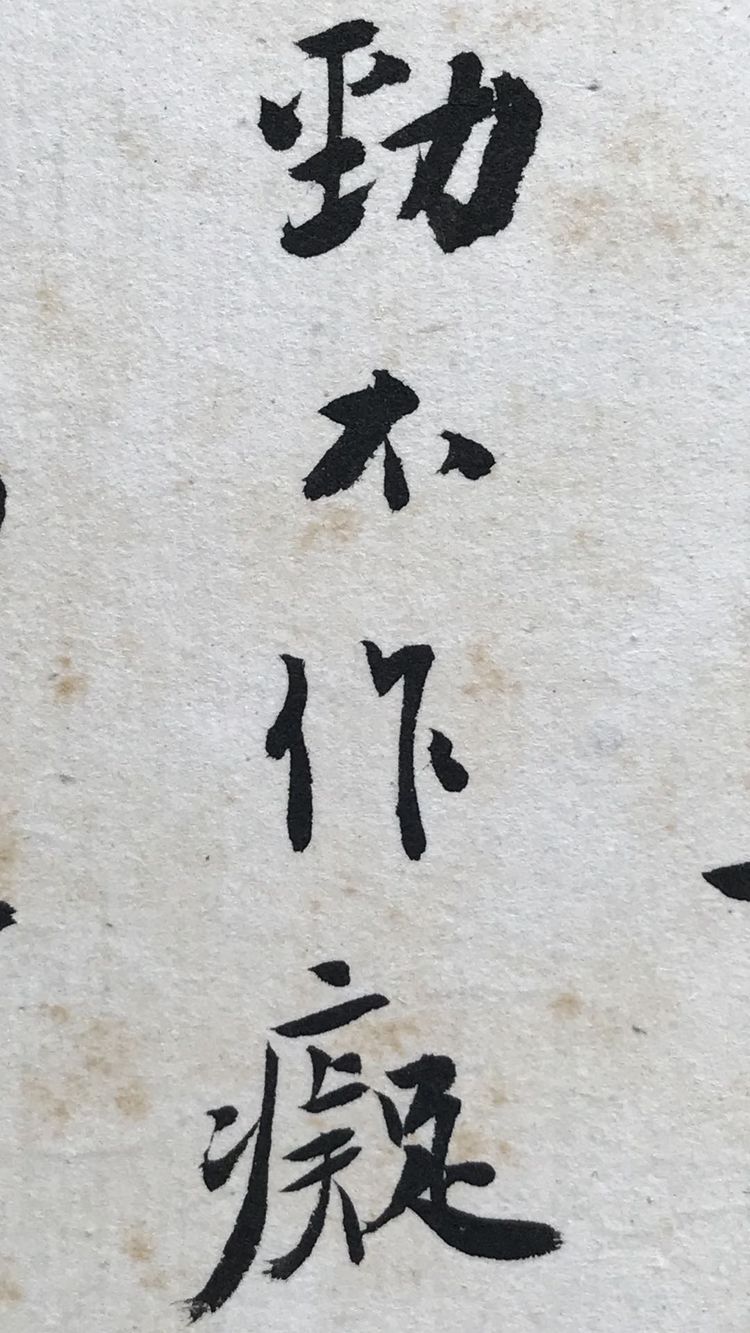 勁不作癡